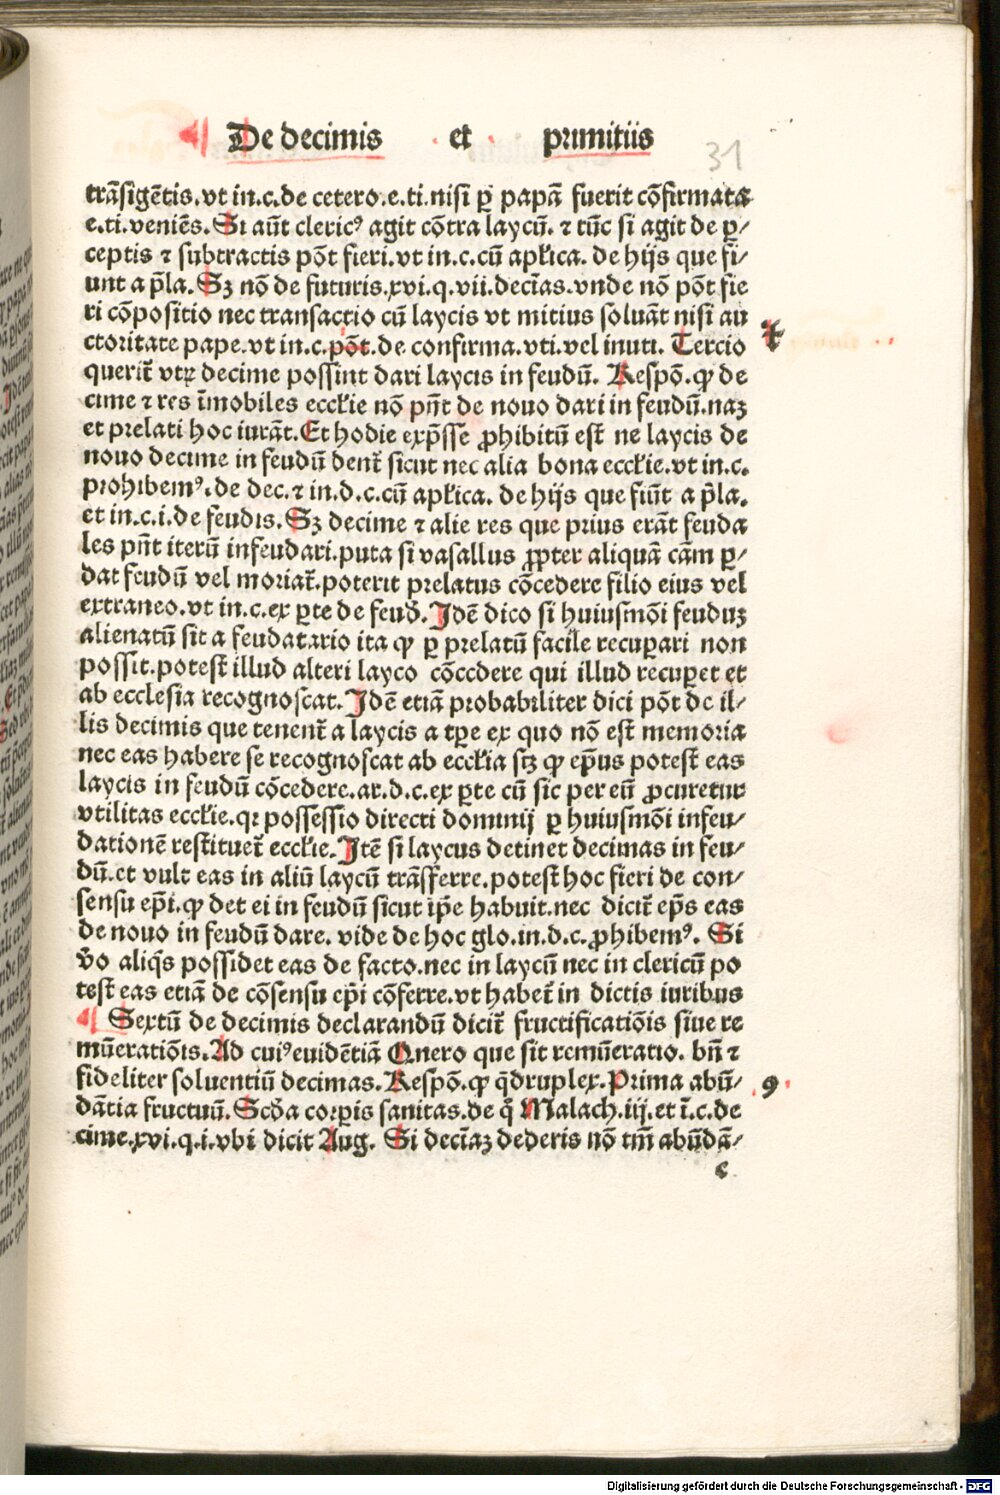 De decimis et primitiis
31
trāſigētis.vt in.c.de cetero.e.ti.niſi ꝑ papā fuerit cōfirmata
e.ti.veniēs.Si aūt clericꝰ agit cōtra laycū. ⁊ tūc ſi agit de ꝑ⸗
ceptis ⁊ ſubtractis pōt fieri.vt in.c.cū apl̄ica. de hijs que fi⸗
unt a p̄la.Sꝫ nō de futuris.xvi.q.vii.decīas.vnde nō pōt fie
ri cōpoſitio nec tranſactio cū laycis vt mitius ſoluāt niſi au
ctoritate pape.vt in.c.pōt.de confirma.vti.vel inuti. Tercio
querit̄ vtꝝ decime poſſint dari laycis in feudū. Reſpō.ꝙ de
cime ⁊ res īmobiles eccl̄ie nō pn̄t de nouo dari in feudū.naꝫ
et prelati hoc iurāt.Et hodie exp̄ſſe ꝓhibitū eſt ne laycis de
nouo decime in feudū dent̄ ſicut nec alia bona eccl̄ie.vt in.c.
prohibemꝰ.de dec.⁊ in.d.c.cū apl̄ica. de hijs que fiūt a p̄la.
et in.c.i.de feudis.Sꝫ decime ⁊ alie res que prius erāt feuda
les pn̄t iterū infeudari.puta ſi vaſallus ꝓpter aliquā cām ꝑ⸗
dat feudū vel moriat̄.poterit prelatus cōcedere filio eius vel
extraneo.vt in.c.ex ꝑte de feud̄.Idē dico ſi huiuſmōi feuduꝫ
alienatū ſit a feudatario ita ꝙ ꝑ prelatū facile recuꝑari non
poſſit.poteſt illud alteri layco cōcedere qui illud recuꝑet et
ab eccleſia recognoſcat.Idē etiā probabiliter dici pōt de il⸗
lis decimis que tenent̄ a laycis a tꝑe ex quo nō eſt memoria
nec eas habere ſe recognoſcat ab eccl̄ia ſtꝫ ꝙ ep̄us poteſt eas
laycis in feudū cōcedere.ar.d.c.ex ꝑte cū ſic per eū ꝓcuretur
vtilitas eccl̄ie.qꝛ poſſeſſio directi dominij ꝑ huiuſmōi infeu⸗
dationē reſtituet̄ eccl̄ie.Itē ſi laycus detinet decimas in feu⸗
dū.et vult eas in aliū laycū trāſferre.poteſt hoc fieri de con⸗
ſenſu ep̄i.ꝙ det ei in feudū ſicut ip̄e habuit.nec dicit̄ ep̄s eas
de nouo in feudū dare. vide de hoc glo.in.d.c.ꝓhibemꝰ. Si
v̄o aliq̄s poſſidet eas de facto.nec in laycū nec in clericū po
teſt eas etiā de cōſenſu ep̄i cōferre.vt habet̄ in dictis iuribus
¶ Sextū de decimis declarandū dicit̄ fructificatiōis ſiue re
mūeratiōis.Ad cuiꝰ euidētiā Quero que ſit remūeratio. bn̄ ⁊
fideliter ſoluentiū decimas.Reſpō.ꝙ q̄druplex.Prima abū⸗
dātia fructuū.Scd̄a corꝑis ſanitas.de q̊ Malach.iij.et ī.c.de
cime.xvi.q.i.vbi dicit Aug. Si decīaꝫ dederis nō tm̄ abūdā⸗
c
Digitalisierung gefördert durch die Deutsche Forschungsgemeinschaft - DFG